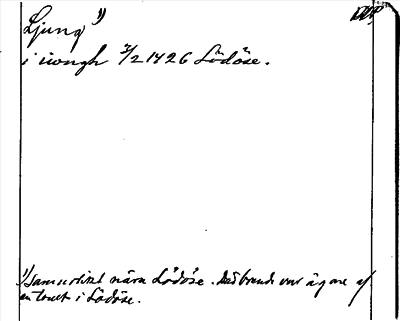 Ljung 1)
i iwongh 2/2 1426 Lödöse.
1) Samma distr nära Lödöse. Med brands var ägare af
en tomt i Lödöse.